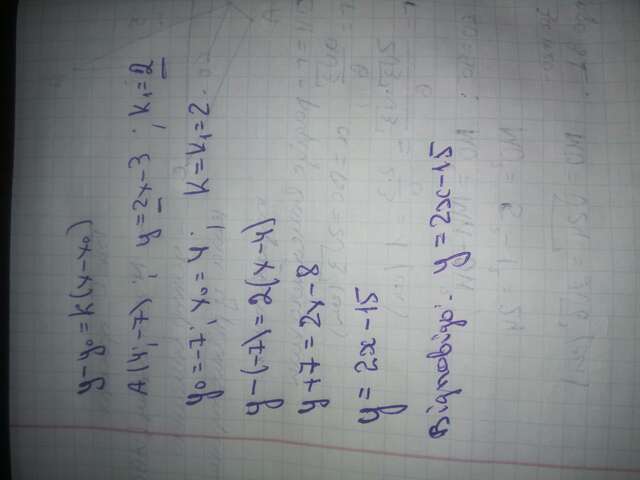 y-y₀=k(x-x₀)
A(4;-7); y=2x-3; k₁=2
y₀=-7; x₀=4; k=k₁=2.
y-(-7)=2(x-4)
y+7=2x-8
y=2x-15
Відповідь: y=2x-15